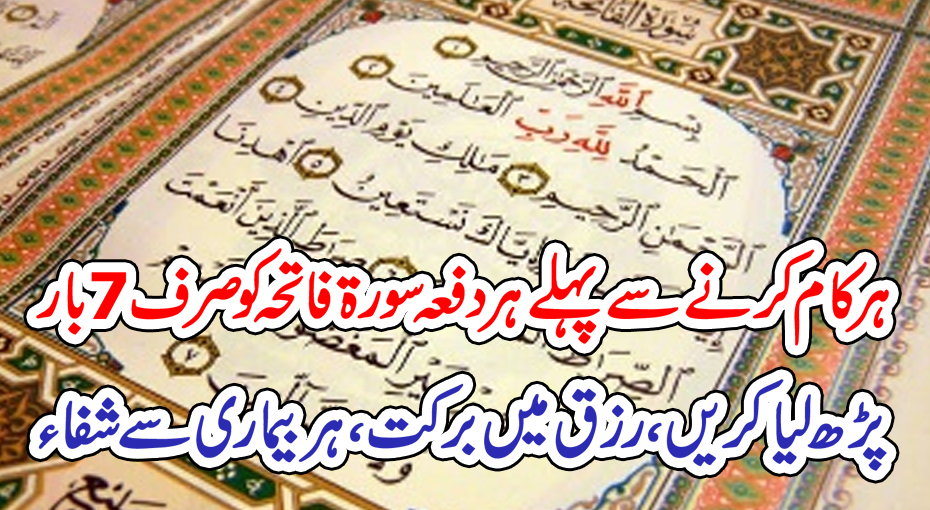 سُورَةُ الفَاتِحَةِ
بِسْمِ ٱللَّهِ ٱلرَّحْمَٰنِ ٱلرَّحِيمِ ١
ٱلْحَمْدُ لِلَّهِ رَبِّ ٱلْعَٰلَمِينَ ٢
ٱلرَّحْمَٰنِ ٱلرَّحِيمِ ٣ مَٰلِكِ يَوْمِ ٱلدِّينِ ٤
وَإِيَّاكَ نَسْتَعِينُ ٥ ٱهْدِنَا
ٱلصِّرَٰطَ صِرَٰطَ ٱلَّذِينَ أَنْعَمْتَ
غَيْرِ ٱلْمَغْضُوبِ
ہر کام کرنے سے پہلے ہر دفعہ سورۃ فاتحہ کو صرف 7 بار
پڑھ لیا کریں، رزق میں برکت، ہر بیماری سے شفاء